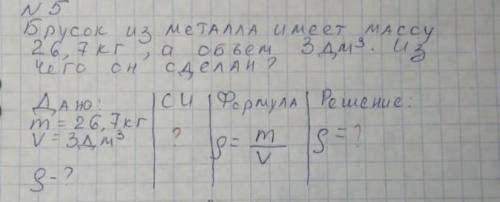 №5
Брусок из металла имеет массу
26,7кг, а объем 3дм³. Из
чего он сделан?
Дано: СИ Формула Решение:
m = 26,7кг ? ρ = m/V ρ = ?
V = 3дм³
ρ - ?